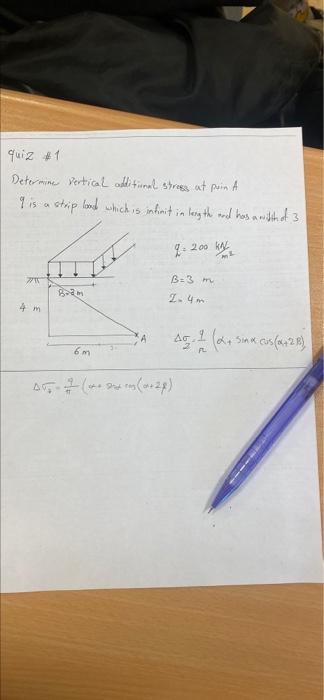 quiz #1
Determine vertical additional stress at poin A
q is a strip load which is infinit in length and has a width of 3
q = 200 kN/m²
B=3m
B=3 m
Z=4m
4 m
A
6m
Δσz = q/π (α+ sinα cos(α+2β))
Δσz = q/π (α+ sinα cos(α+2β)